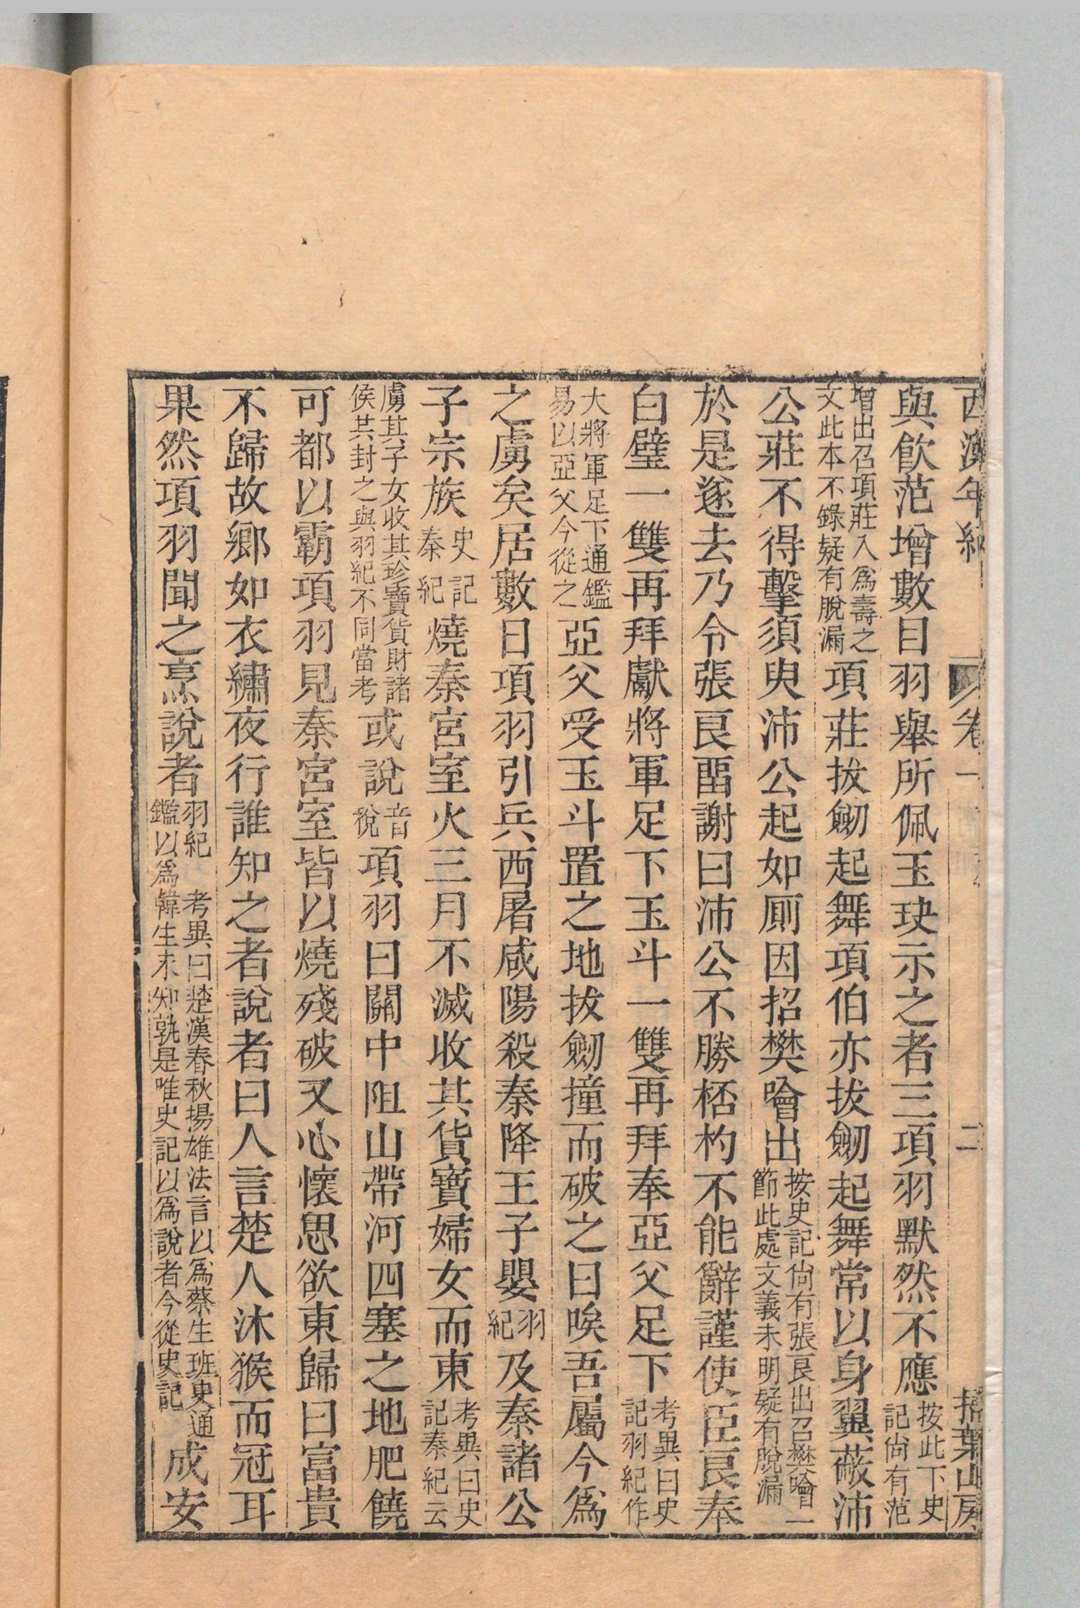 西漢年紀 卷一 二 掃葉山房
與飮范增數目羽舉所佩玉玦示之者三項羽默然不應按此下史記尙有范
增出召項莊入爲壽之文此本不錄疑有脫漏項莊拔劒起舞項伯亦拔劒起舞常以身翼蔽沛
公莊不得擊須臾沛公起如厠因招樊噲出按史記尙有張良出召樊噲一節此處文義未明疑有脫漏
於是遂去乃令張良畱謝曰沛公不勝桮杓不能辭謹使臣良奉
白璧一雙再拜獻將軍足下玉斗一雙再拜奉亞父足下考異曰史記羽紀作
大將軍足下通鑑易以亞父今從之亞父受玉斗置之地拔劒撞而破之曰唉吾屬今爲
之虜矣居數日項羽引兵西屠咸陽殺秦降王子嬰羽紀及秦諸公
子宗族史記秦紀燒秦宮室火三月不滅收其貨寶婦女而東考異曰史記秦紀云
虜其子女收其珍寶貨財諸侯其封之與羽紀不同當考或說音稅項羽曰關中阻山帶河四塞之地肥饒
可都以霸項羽見秦宮室皆以燒殘破又心懷思欲東歸曰富貴
不歸故鄉如衣繡夜行誰知之者說者曰人言楚人沐猴而冠耳
果然項羽聞之烹說者羽紀 考異曰楚漢春秋揚雄法言以爲蔡生班史通鑑以爲韓生未知孰是唯史記以爲說者今從史記成安